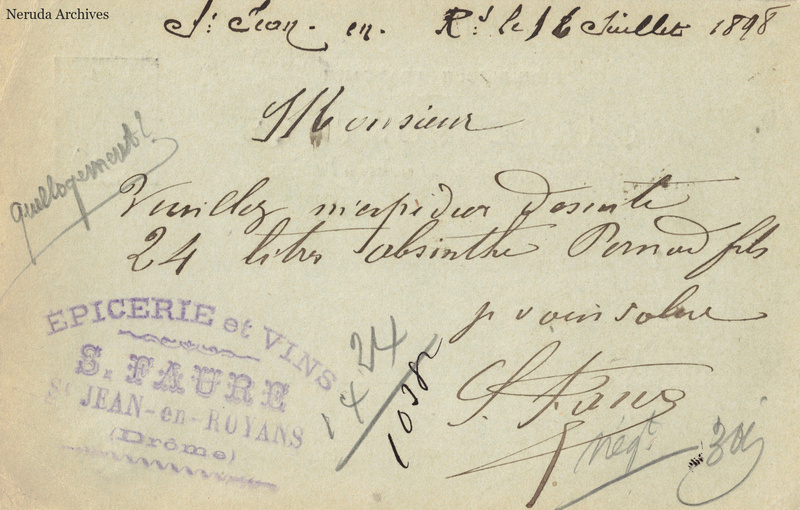 Neruda Archives
St Jean - en - Rs le 16 Juillet 1898
Monsieur
quel logement?
Veuillez m'expedier desuite
24 litres absinthe Pernod fils
je vous salue
ÉPICERIE et VINS
S. FAURE
St JEAN-en-ROYANS
(Drôme)
24
14
1038
S. Faure
négt